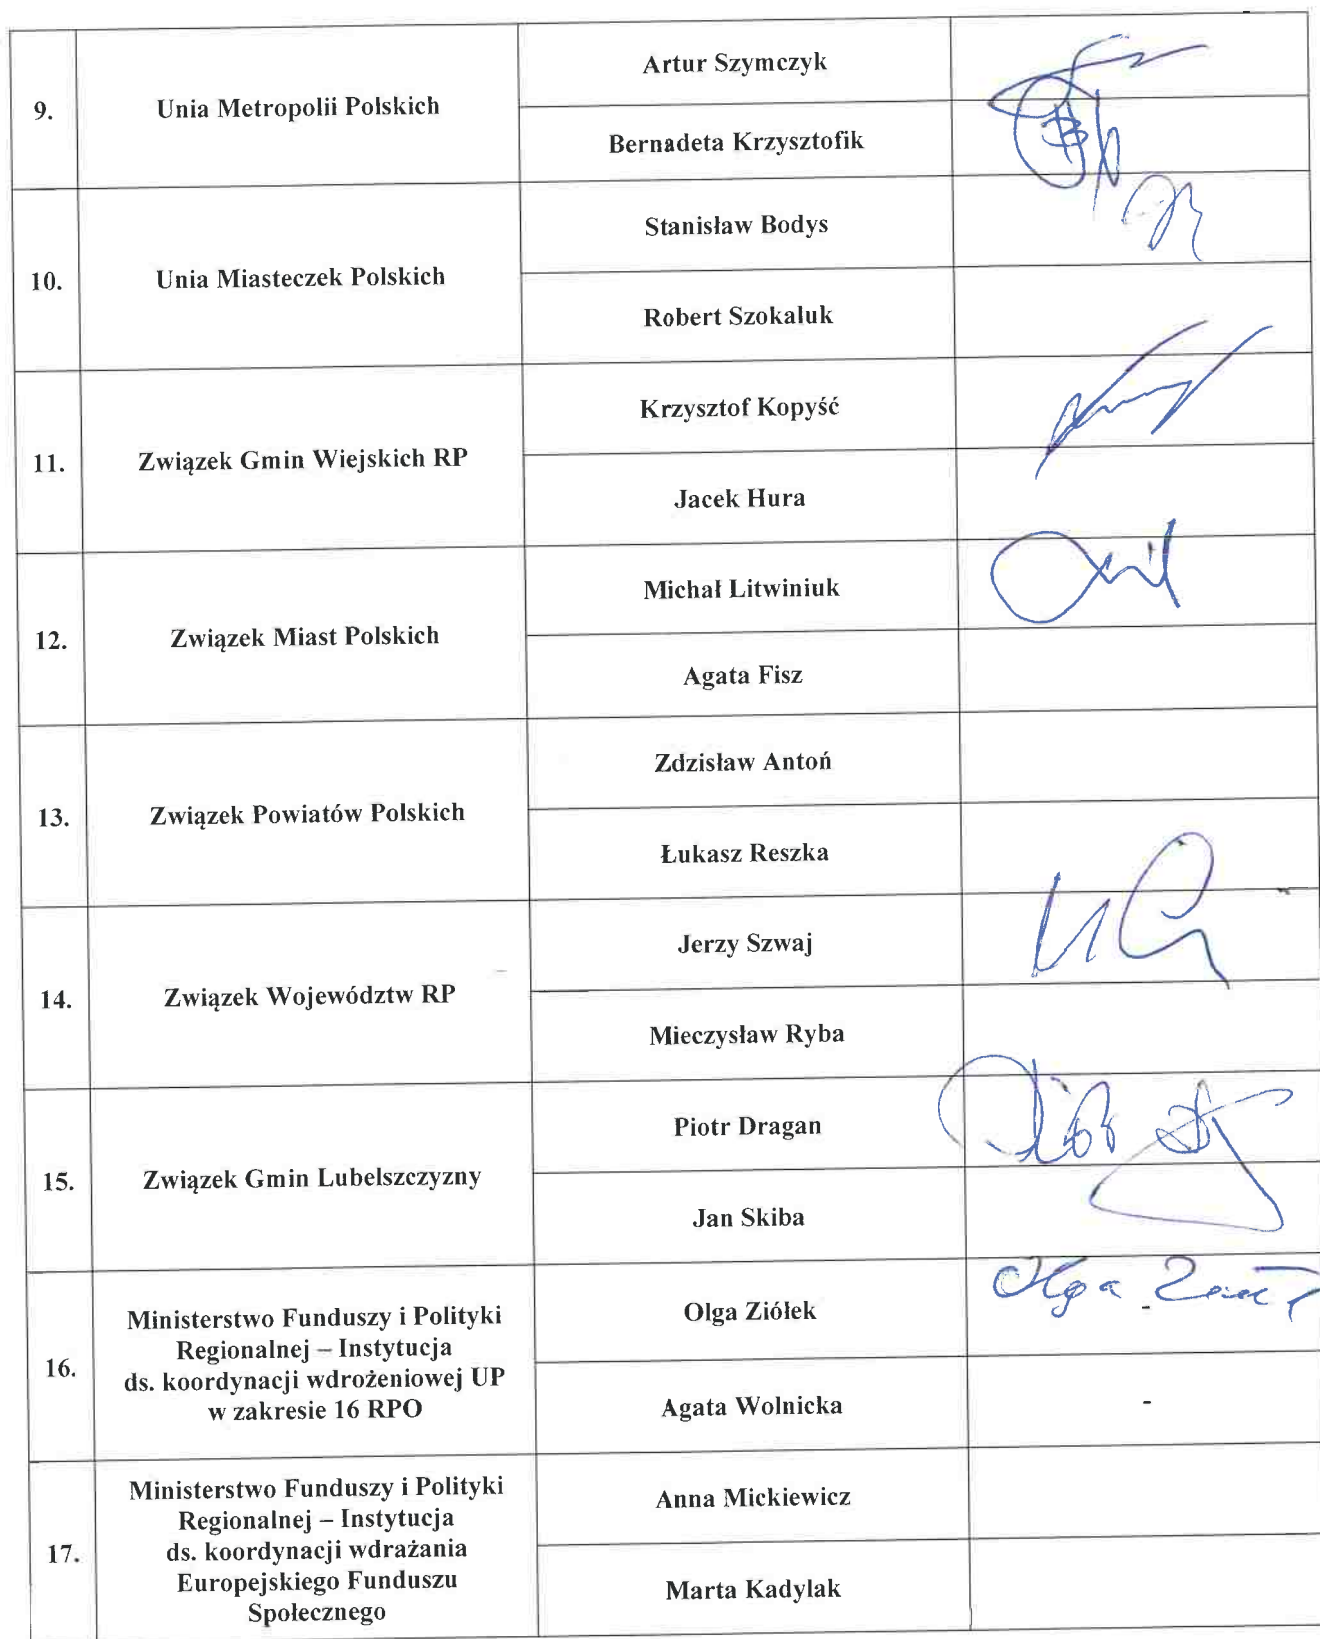 9.
Unia Metropolii Polskich
Artur Szymczyk
Bernadeta Krzysztofik
10.
Unia Miasteczek Polskich
Stanisław Bodys
Robert Szokaluk
11.
Związek Gmin Wiejskich RP
Krzysztof Kopyść
Jacek Hura
12.
Związek Miast Polskich
Michał Litwiniuk
Agata Fisz
13.
Związek Powiatów Polskich
Zdzisław Antoń
Łukasz Reszka
14.
Związek Województw RP
Jerzy Szwaj
Mieczysław Ryba
15.
Związek Gmin Lubelszczyzny
Piotr Dragan
Jan Skiba
16.
Ministerstwo Funduszy i Polityki
Regionalnej – Instytucja
ds. koordynacji wdrożeniowej UP
w zakresie 16 RPO
Olga Ziółek
Olga
-
Agata Wolnicka
-
17.
Ministerstwo Funduszy i Polityki
Regionalnej – Instytucja
ds. koordynacji wdrażania
Europejskiego Funduszu
Społecznego
Anna Mickiewicz
Marta Kadylak